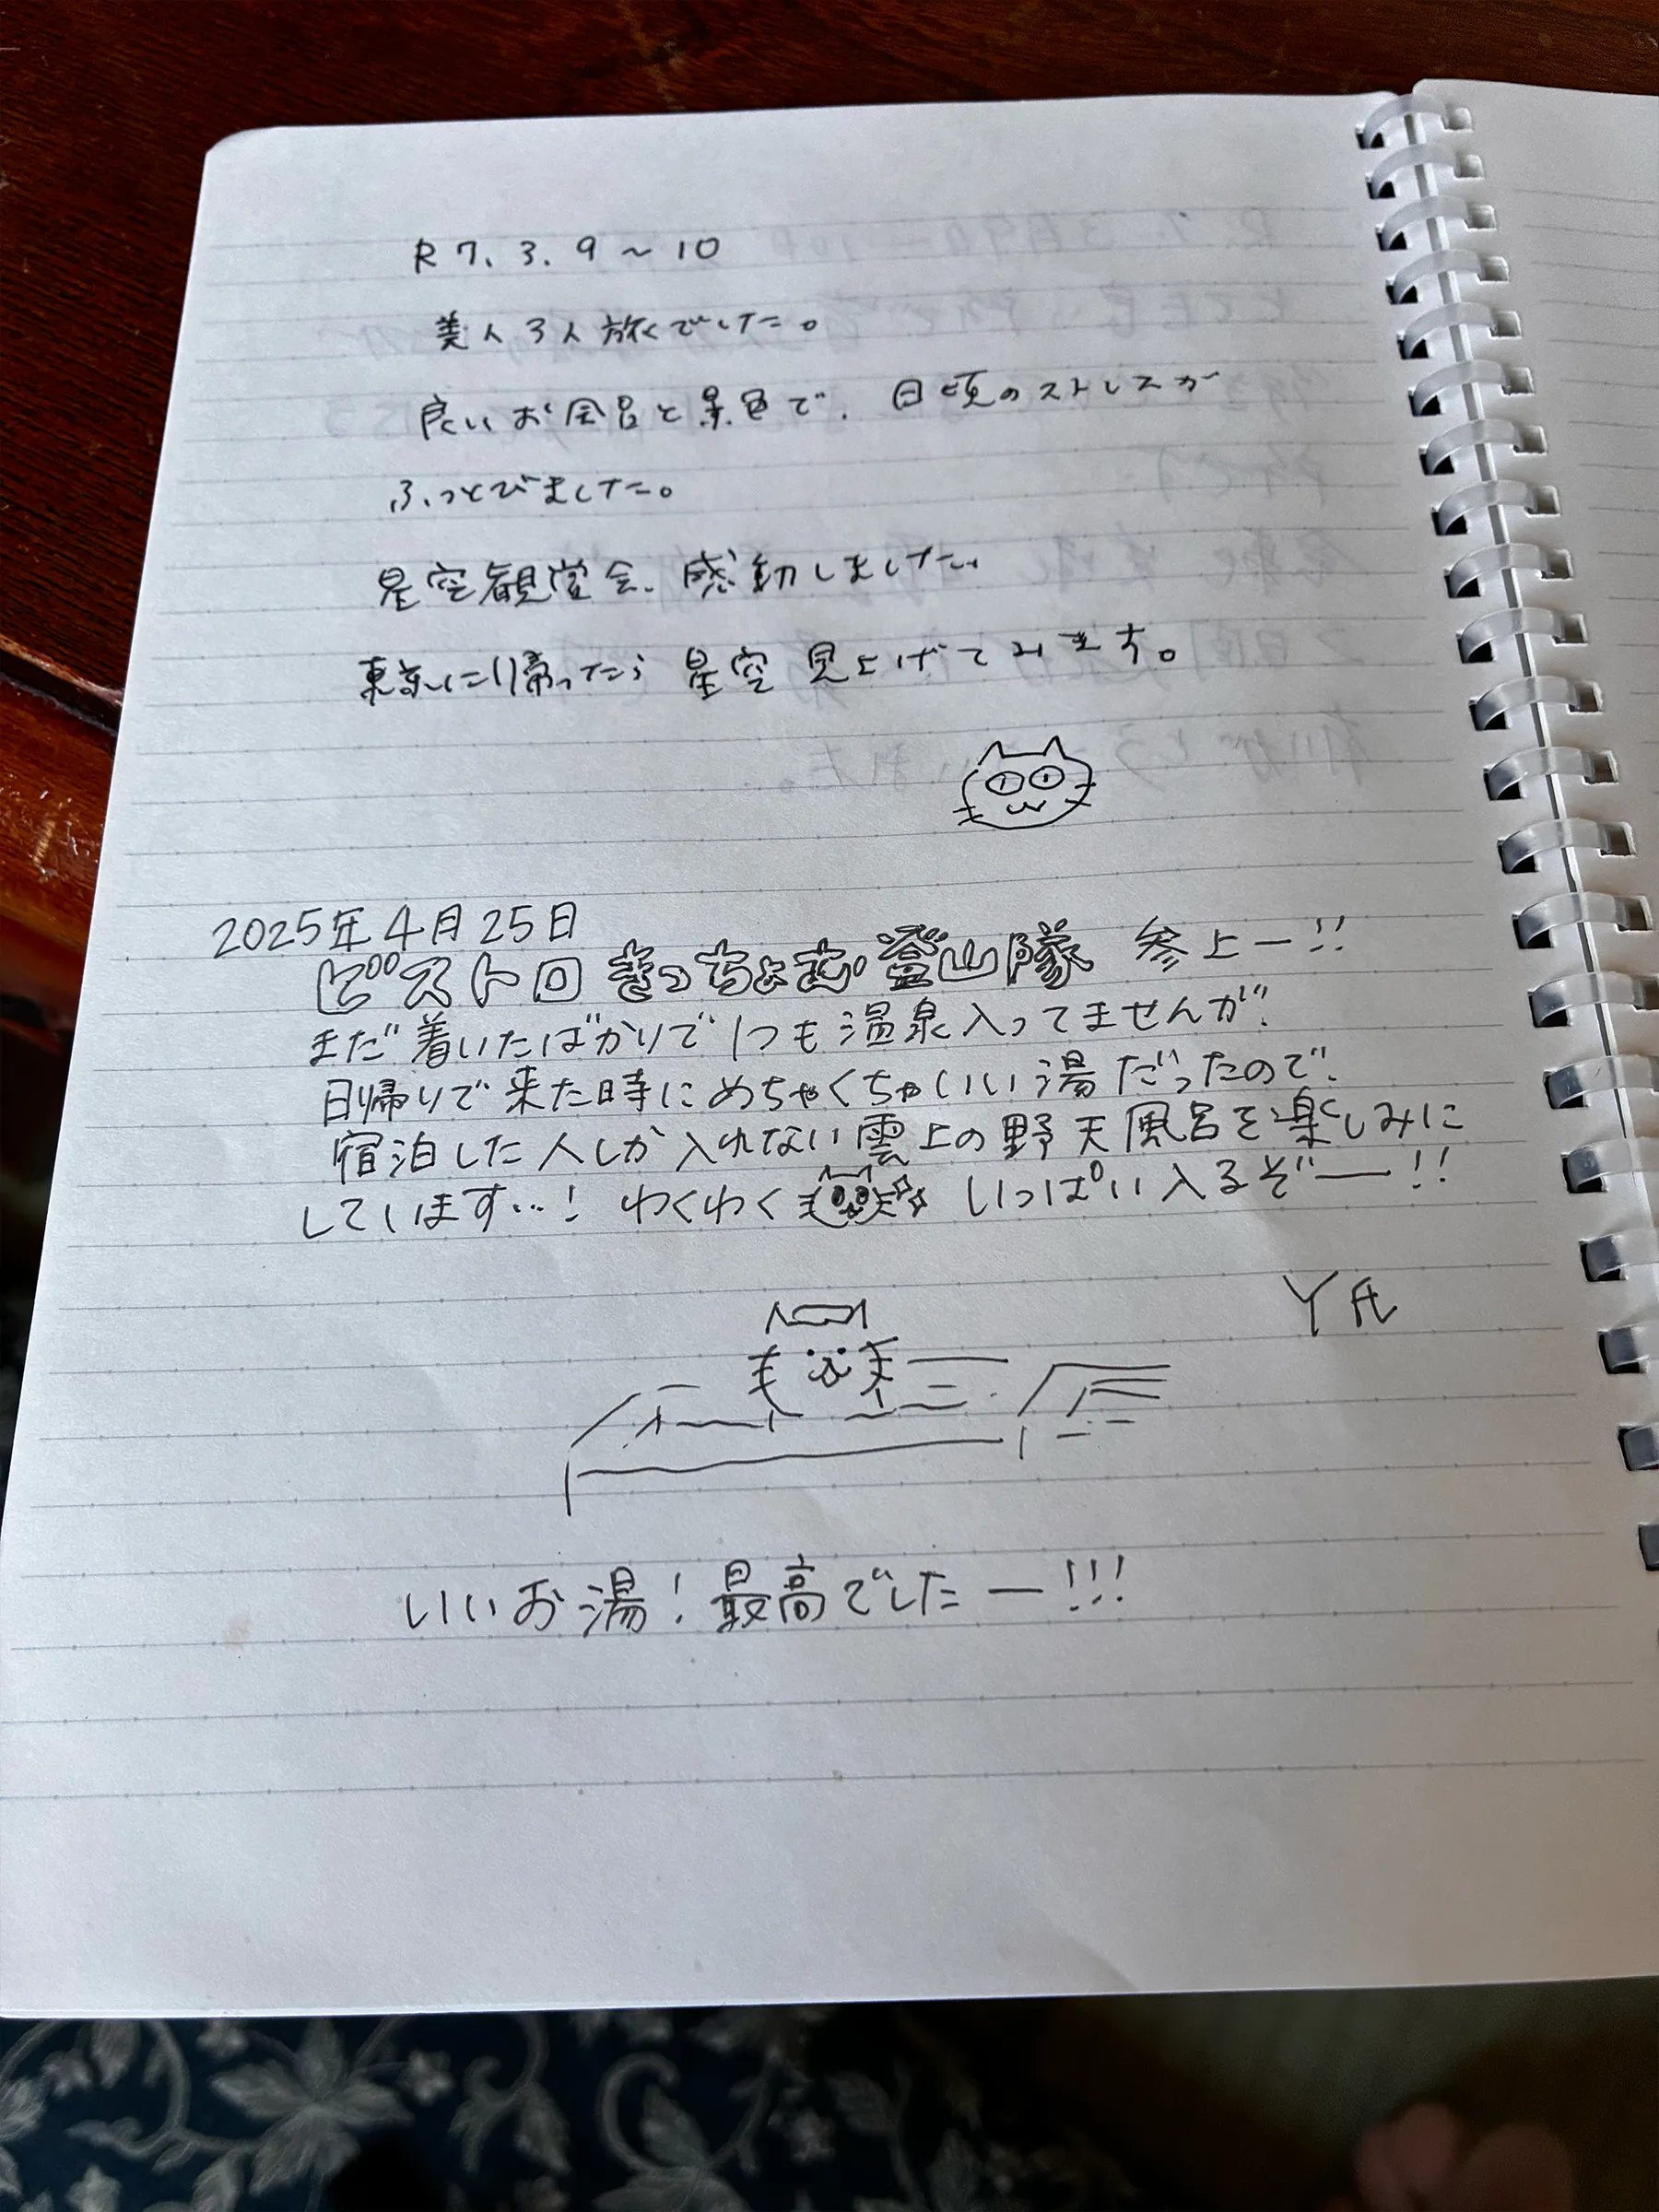 R7.3.9〜10
美人3人旅でした。
良いお風呂と景色で、日頃のストレスが
ふっとびました。
星空観賞会、感動しました。
東京に帰ったら星空見上げてみます。
2025年4月25日
ビストロきっちょむ登山隊 参上ー!!
まだ着いたばかりで1つも温泉入ってませんが、
日帰りで来た時にめちゃくちゃいい湯だったので、
宿泊した人しか入れない雲上の野天風呂を楽しみに
しています…! わくわく いっぱい入るぞー!!
いいお湯!最高でしたー!!!